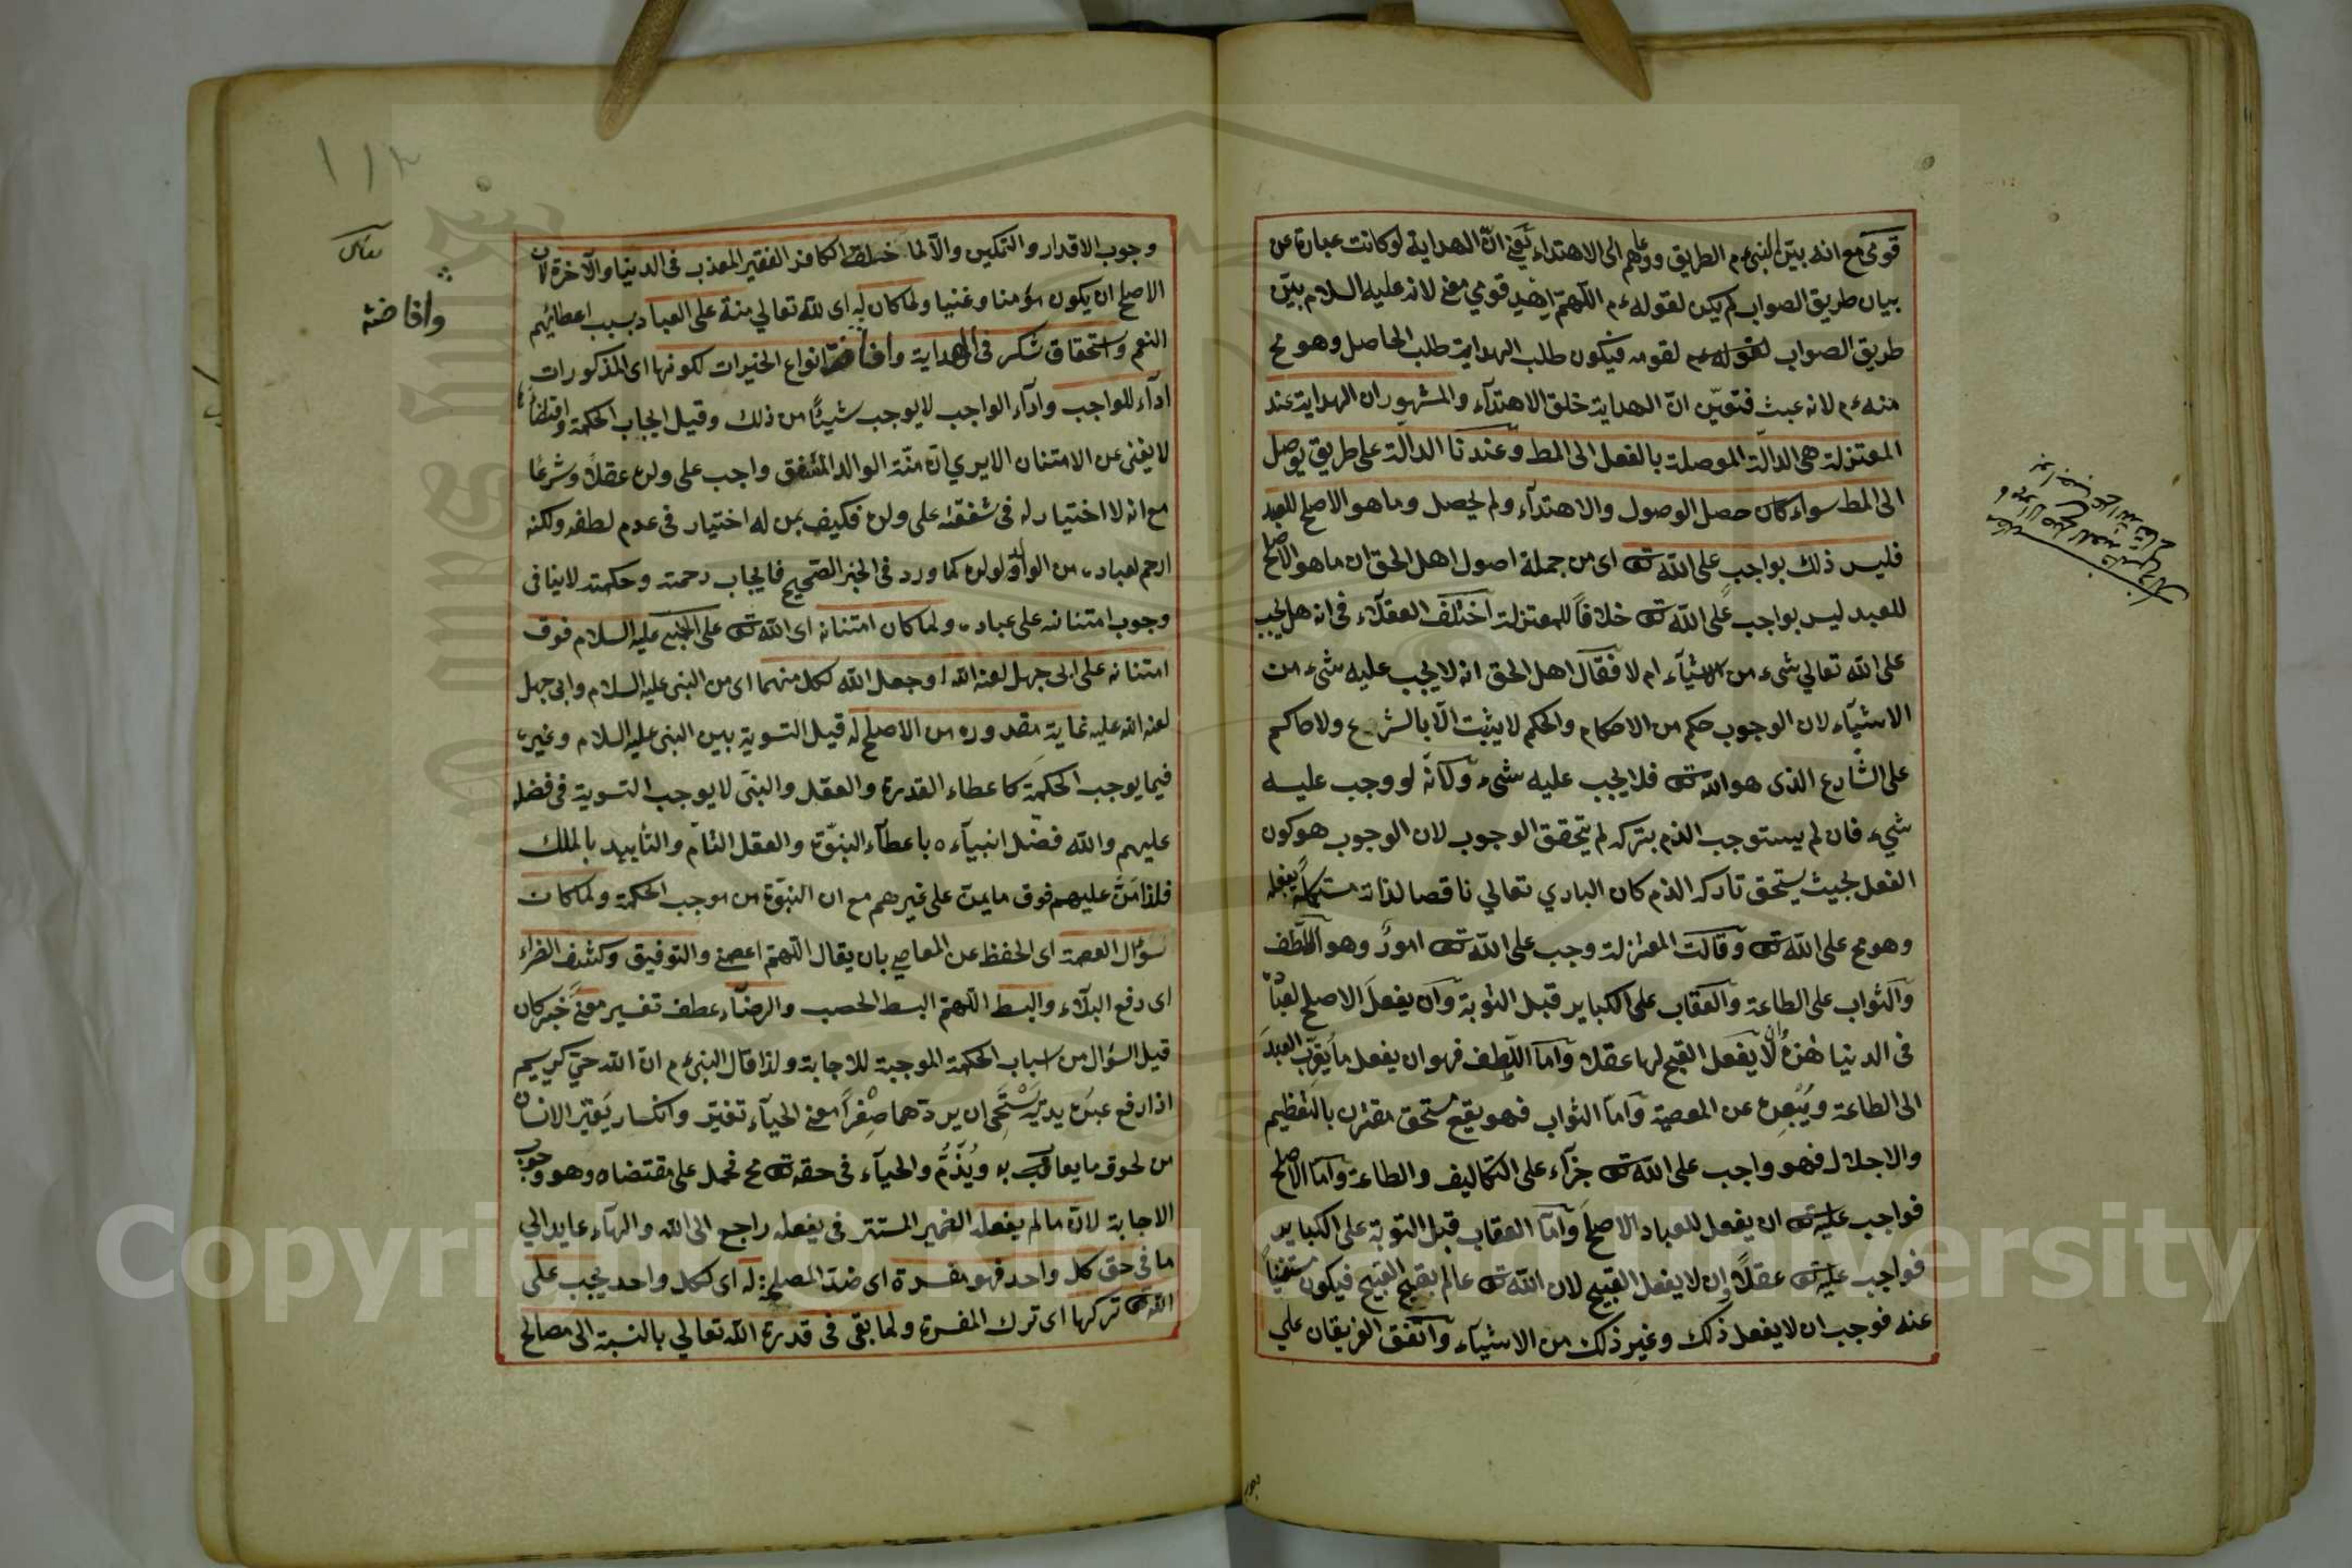 قومى مع انه بيّن النبى ءم الطريق ودعاهم الى الاهتداء يعنى انّ الهداية لو كانت عبارة عن
بيان طريق الصواب لم يكن لقوله ءم اللّهمّ اهدِ قومي معنى لانه عليه السلام بيّن
طريق الصواب لقومه فيكون طلب الهداية طلب الحاصل وهو مح
منه ءم لانه عبث فتعيّن انّ الهداية خلق الاهتدآء والمشهور ان الهداية عند
المعتزلة هى الدالّة الموصلة بالفعل الى المط وعندنا الدالّة على طريق يوصل
الى المط سواء كان حصل الوصول والاهتدآء ولم يحصل وما هو الاصلح للعبد
فليس ذلك بواجب على الله تعـ اى من جملة اصول اهل الحق ان ما هو الاصلح
للعبد ليس بواجب على الله تعـ خلافاً للمعتزلة اختلف العقلاء فى انه هل يجب
على الله تعالي شىء من الاشيآء ام لا فقال اهل الحق انه لا يجب عليه شىء من
الاشيآء لان الوجوب حكم من الاحكام والحكم لا يثبت الّا بالشرع ولا حاكم
على الشارع الذى هو الله تعـ فلا يجب عليه شىء ولانّه لو وجب عليه
شىء فان لم يستوجب الذم بتركه لم يتحقق الوجوب لان الوجوب هو كون
الفعل بحيث يستحق تاركه الذم كان الباري تعالي ناقصا لذاته مستكملاً بفعله
وهو مح على الله تعـ وقالت المعتزلة وجب على الله تعـ امورٌ وهو اللّطف
والثواب على الطاعة والعقاب على الكباير قبل التوبة وان يفعل الاصلح لعباده
فى الدنيا وان لا يفعل القبيح لها عقلا وامّا اللّطف فهو ان يفعل ما يُقرِّب العبدَ
الى الطاعة ويُبعده عن المعصية وامّا الثواب فهو نفع مستحق مقترن بالتعظيم
والاجلال فهو واجب على الله تعـ جزآء على التكاليف والطاعة وامّا الاصلح
فواجب عليه تعـ ان يفعل للعباد الاصلح وامّا العقاب قبل التوبة على الكباير
فواجب عليه تعـ عقلاً وان لا يفعل القبيح لان الله تعـ عالم بقبح القبيح فيكون مستغنياً
عنه فوجب ان لا يفعل ذلك وغير ذلك من الاشيآء واتفق الفريقان على
وجوب الاقدار والتمكين والّا لما خلق الكافر الفقير المعذب فى الدنيا والآخرة لان
الاصلح ان يكون مؤمنا وغنيا ولما كان له اى لله تعالي منة على العباد بسبب اعطائهم
النعم واستحقاق شكر فى الهداية وافاضة انواع الخيرات لكونها اى المذكورات
ادآء للواجب وادآء الواجب لا يوجب شيئًا من ذلك وقيل ايجاب الحكمة واقتضائها
لا يغنى عن الامتنان الا يرى انّ منّة الوالد المشفق واجب على ولده عقلاً وشرعًا
مع انه لا اختيار له فى شفقته على ولده فكيف بمن له اختيار فى عدم لطفه ولكنه
ارحم لعباده من الوالد لولده كما ورد فى الخبر الصّحيح فايجاب رحمته وحكمته لا ينافى
وجوب امتنانه على عباده ولما كان امتنانه اى الله تعـ على النبى عليه السلام فوق
امتنانه على ابى جهل لعنه الله اذ جعل الله لكل منهما اى من النبى عليه السلام وابى جهل
لعنة الله عليه غاية مقدوره من الاصلح له قيل التسوية بين النبى عليه السلام وغيره
فيما يوجب الحكمة كاعطاء القدرة والعقل والبنى لا يوجب التسوية فى فضله
عليهم والله فضل انبيآءه باعطآء النبوّة والعقل التامّ والتأييد بالملك
فلذا مَنَّ عليهم فوق ما يمنّ على غيرهم مع ان النبوّة من موجب الحكمة ولما كان
سؤال العصمة اى الحفظ عن المعاصي بان يقال اللّهمّ اعصمنى والتوفيق وكشف الضراء
اى دفع البلآء والبسط اللّهمّ البسط الخصب والرخآء عطف تفسير معنىً خبر كان
قيل السؤال من اسباب الحكمة الموجبة للاجابة ولذا قال النبى ءم انّ الله حيىّ كريم
اذا رفع عبده يديه يَسْتَحْيى ان يردّهما صِفْراً معنى الحيآء تغيّر وانكسار يَعْتَرِ الانسان
من لحوق ما يعاقب به ويُذَمُّ والحيآء فى حقه تعـ مح فحمل على مقتضاه وهو وجوب
الاجابة لانّ ما لم يفعله الضمير المستتر فى يفعله راجع الى الله والهآء عايد الي
ما فى حق كل واحد فهو مفسدة اى ضدّ المصلحة له اى لكل واحد يجب على
الله تعـ تركها اى ترك المفسدة ولما بقى فى قدرة الله تعالي بالنسبة الى مصالح
وافاضة
Copyright © King Saud University